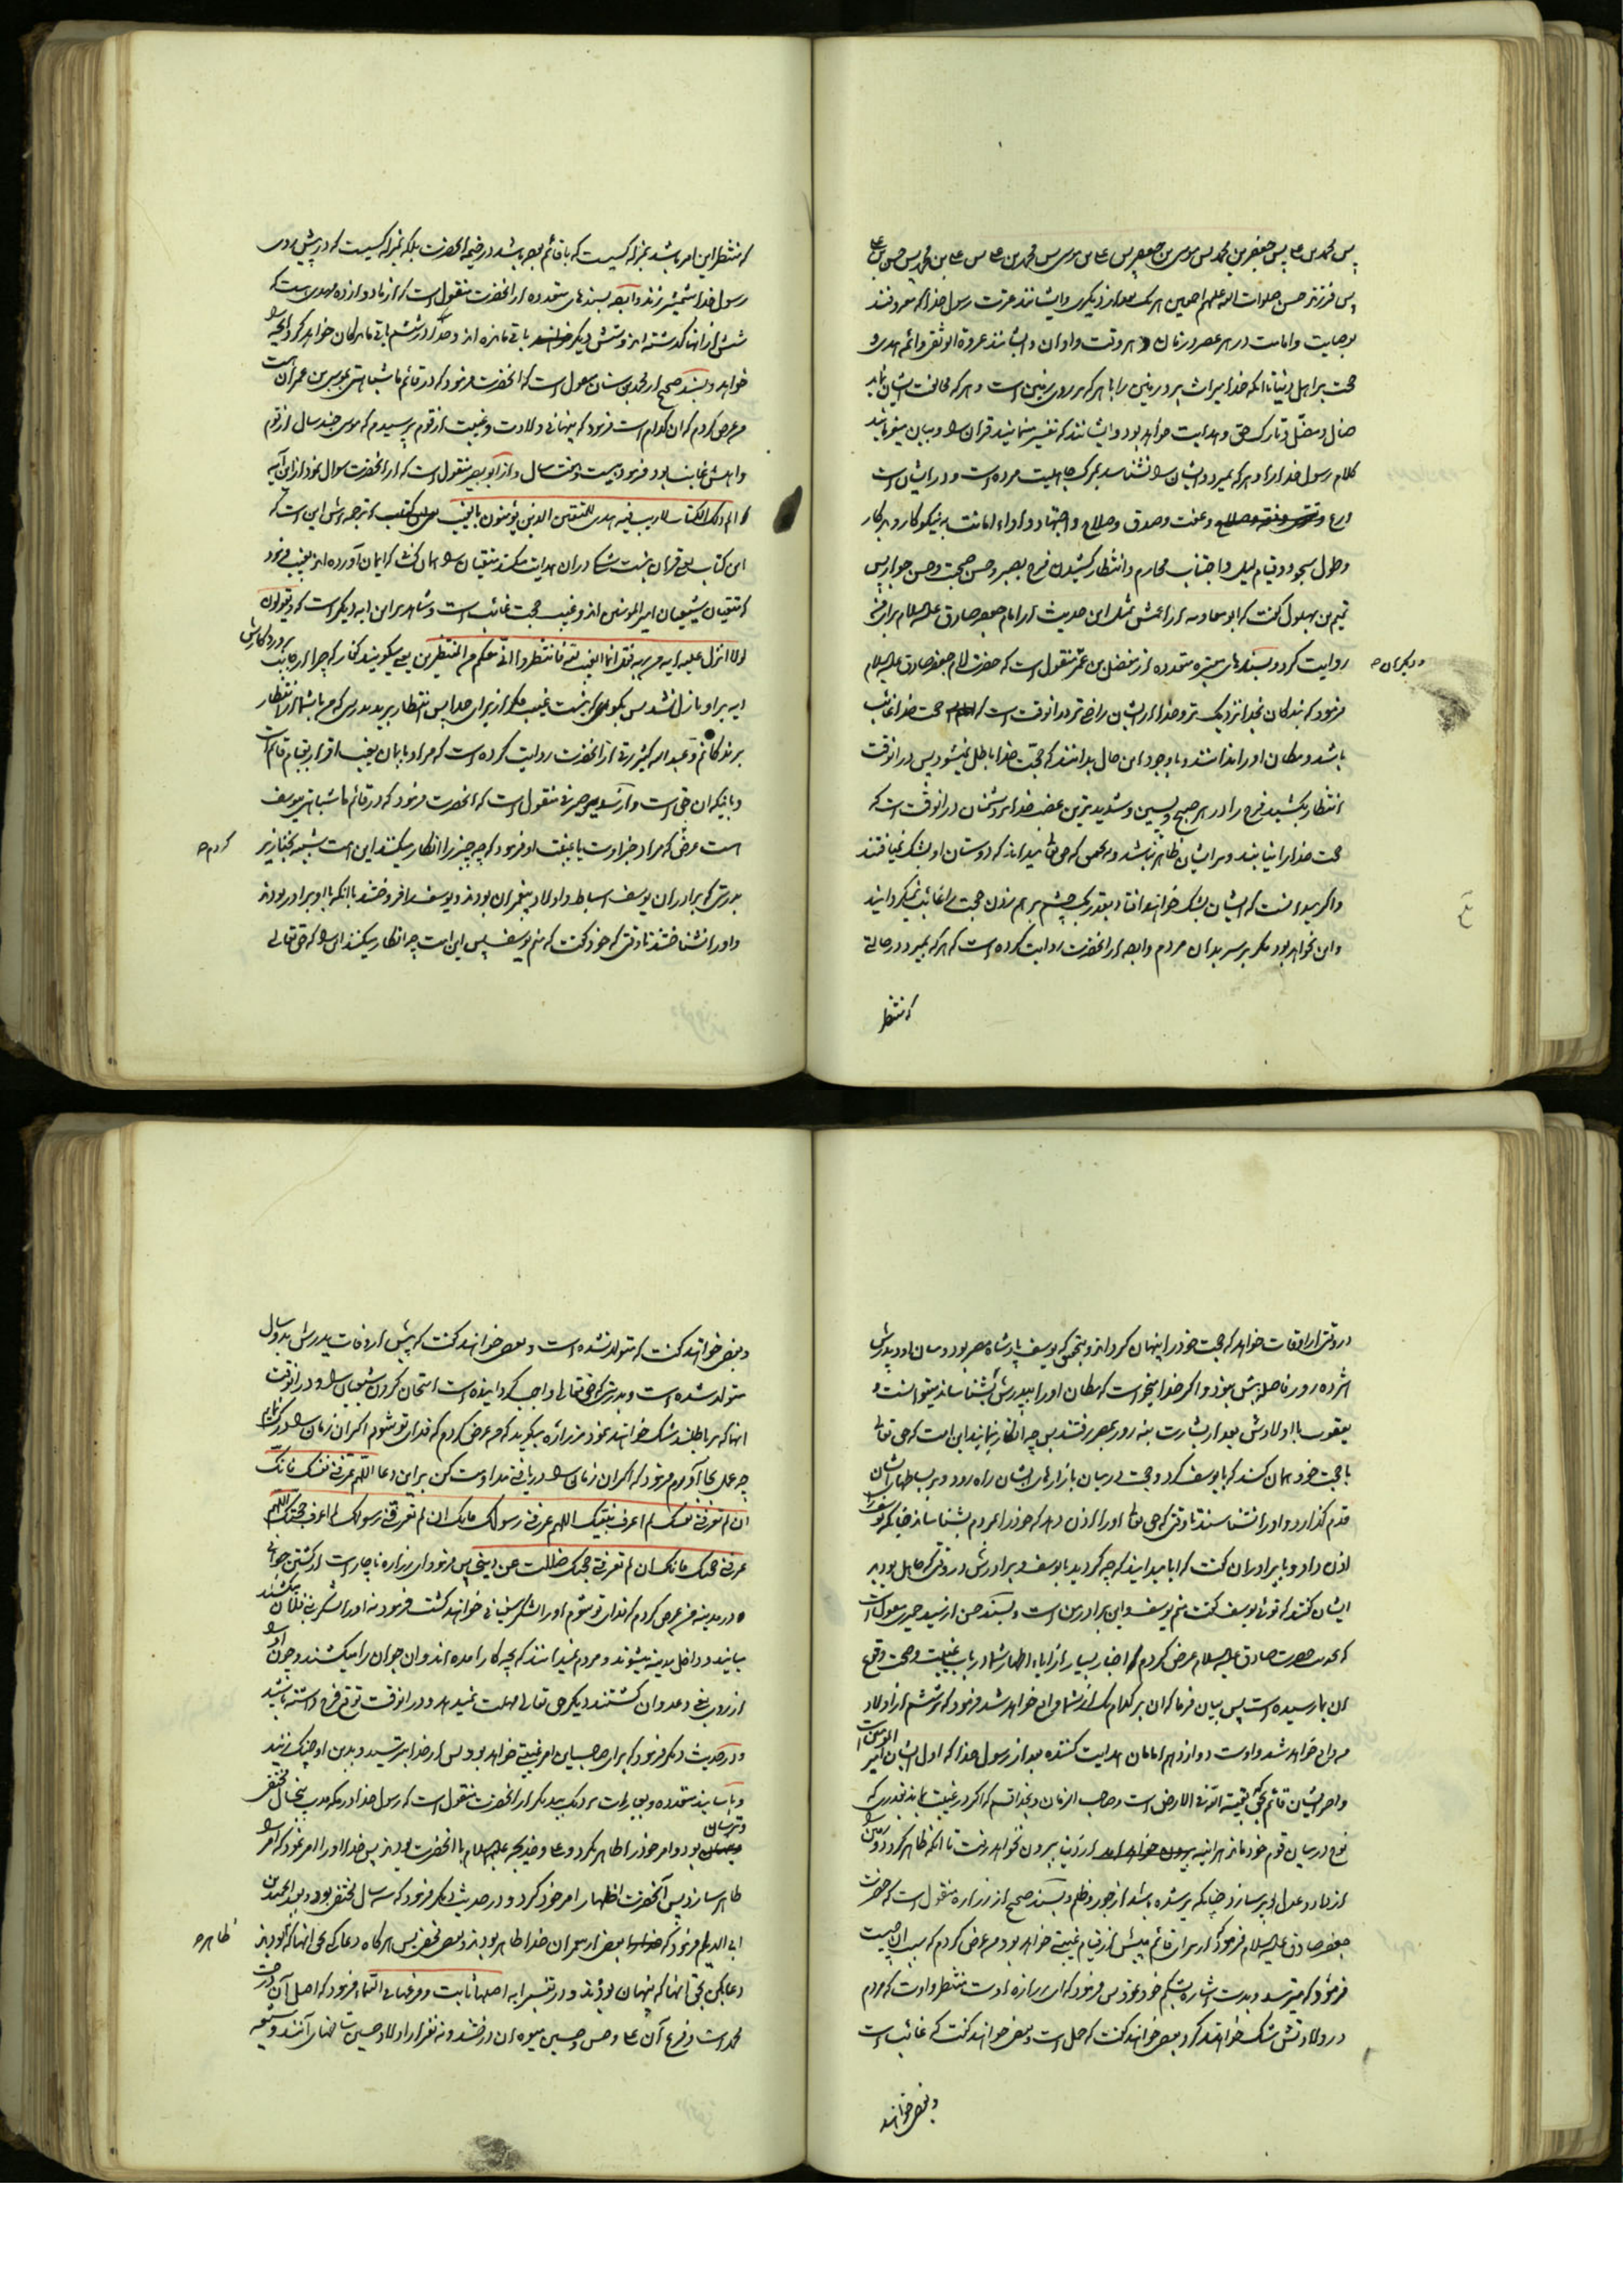 پس محمد بن علی پس جعفر بن محمد پس موسی بن جعفر پس علی بن موسی پس محمد بن علی پس علی بن محمد پس حسن بن علی
پس فرزند حسن صلوات الله علیهم اجمعین هر یک بعد از دیگری و ایشانند عترت رسول خدا که معروفند
بوصایت و امامت در هر عصر و زمان و هر وقت و اوان و ایشانند عروة الوثقی و ائمه هدی و
حجت بر اهل دنیا تا آنکه خدا میراث برد زمین را با هر که بر روی زمین است و هر که مخالفت ایشان نماید
ضال و مضل و تارک حق و هدایت خواهد بود و ایشانند که تفسیر مینمایند قران را و بیان میفرمایند
کلام رسول خدا را و هر که بمیرد و ایشان را نشناسد بمرگ جاهلیت مرده است و در ایشان است
ورع و عفت و صدق و صلاح و اجتهاد و اداء امانت به نیکوکار و بدکار
و طول سجود و قیام لیل و اجتناب محارم و انتظار کشیدن فرج بصبر و حسن صحبت و حسن جوار پس
تمیم بن بهلول گفت که ابو معاویه از اعمش مثل این حدیث از امام جعفر صادق علیه السلام برای من
روایت کرد و بسندهای معتبره متعدده از مفضل بن عمر منقول است که حضرت امام جعفر صادق علیه السلام
و دیگران صح
فرمود که بندگان بخدا نزدیک تر و خدا از ایشان راضی تر در آنوقت است که حجت خدا غائب
باشد و مکان او را ندانند و با وجود این حال بدانند که حجت خدا باطل نمیشود پس در آنوقت
انتظار بکشید فرج را در هر صبح و پسین و شدیدترین غضب خدا بر دشنان در آنوقت است که
حجت خدا را نیابند و بر ایشان ظاهر نباشد و بتحقیق که حق تعالی میداند که دوستان او بشک نمی افتند
و اگر میدانست که ایشان بشک خواهند افتاد بقدر یک چشم بر هم زدن حجت را غائب نمیگردانید
و این نخواهد بود مگر بر سر بدان مردم و ایضا از آنحضرت روایت کرده است که هر که بمیرد در حالتی
که منتظر
که منتظر این امر باشد بمنزله کسیست که با قائم بوده باشد در خیمه آنحضرت بلکه بمنزله کسیست که در پیش روی
رسول خدا شمشیر زند و ایضا بسندهای متعدده از آنحضرت منقول است که از ما دوازده مهدی است که
شش از انها گذشته اند و شش دیگر باقی مانده اند و خدا در ششم باقی مانده کان خواهد کرد آنچه را
خواهد و بسند صحیح از محمد بن سنان منقول است که آنحضرت فرمود که در قائم ما شباهتی بموسی بن عمران است
من عرض کردم که ان کدام است فرمود که پنهانی ولادت و غیبت از قوم پرسیدم که موسی چند سال از قوم
و اهلش غایب بود فرمود بیست و هشت سال و از ابو بصیر منقول است که از آنحضرت سوال نمود از این آیه
الم ذلک الکتاب لا ریب فیه هدی للمتقین الذین یؤمنون بالغیب که ترجمه اش این است که
این کتاب یعنی قران نیست شک در ان هدایت میکند متقیان را همان کسانی که ایمان آورده اند بغیب فرمود
که متقیان شیعیان امیر المومنین اند و غیب حجت غائب است و شاهد بر این ایه دیگر است که و یقولون
لولا انزل علیه ایه من ربه فقل انما الغیب لله فانتظروا انی معکم من المنتظرین یعنی میگویند کفار که چرا از جانب پروردگارش
ایه بر او نازل نشد پس بگو که نیست غیب مگر از برای خدا پس انتظار برید بدرستی که من با شما از انتظار
برندکانم و عبد الله کثیر رقی از آنحضرت روایت کرده است که مراد بایمان بغیب اقرار بقیام قائم است
و باینکه ان حق است و از سدیر صیرفی منقول است که آنحضرت فرمود که در قائم ما شباهتی بیوسف
است عرض کردم که مراد خبر اوست یا غیبت او فرمود که چه چیز را انکار میکنند این امت شبیه بخنازیر
کردم صح
بدرستی که برادران یوسف اسباط و اولاد پیغمبران بودند و یوسف را فروختند با انکه با او برادر بودند
و او را نشناختند تا وقتی که خود گفت که منم یوسف پس این امت چرا انکار میکنند این را که حق تعالی
در وقتی از اوقات خواهد که حجت خود را پنهان گرداند و بتحقیق که یوسف پادشاه مصر بود و میان او و پدرش
هژده روز فاصله بیش نبود و اگر خدا میخواست که مکان او را بپدرش بشناساند میتوانست و
یعقوب با اولادش بعد از بشارت بنه روز بمصر رفتند پس چه انکار مینمایند این امت که حق تعالی
با حجت خود همان کند که با یوسف کرد و حجت در میان بازارهای ایشان راه رود و بر بساطهای ایشان
قدم گذارد و او را نشناسند تا وقتی که حق تعالی او را اذن دهد که خود را بمردم بشناساند چنانکه یوسف را
اذن داد و با برادران گفت که ایا میدانید که چه کردید با یوسف و برادرش در وقتی که جاهل بودید
ایشان گفتند که توئی یوسف گفت منم یوسف و این برادر من است و بسند حسن از سید حمیری منقول است
که بخدمت حضرت صادق علیه السلام عرض کردم که اخبار بسیار از اباء اطهار شما در باب غیبت و صحت وقوع
ان بما رسیده است پس بیان فرما که ان بر کدام یک از شما واقع خواهد شد فرمود که بر ششم از اولاد
من واقع خواهد شد و اوست دوازدهم امامان هدایت کننده بعد از رسول خدا که اول ایشان امیر المومنین است
و اخر ایشان قائم بحق بقیة الله فی الارض است و صاحب الزمان و بخدا قسم که اگر در غیبت بماند بقدری که
نوح در میان قوم خود ماند هر اینه از دنیا بیرون نخواهد رفت تا انکه ظاهر گردد و زمین را
از داد و عدل پر سازد چنانکه پر شده باشد از جور و ظلم و بسند صحیح از زراره منقول است که حضرت
جعفر صادق علیه السلام فرمود که از برای قائم پیش از قیام غیبتی خواهد بود من عرض کردم که سبب ان چیست
فرمود که میترسد و بدست اشاره بشکم خود نمود پس فرمود که ای زراره اوست منتظر و اوست که مردم
در ولادتش شک خواهند کرد بعضی خواهند گفت که حمل است و بعضی خواهند گفت که غائب است
و بعضی خواهند
و بعضی خواهند گفت که متولد نشده است و بعضی خواهند گفت که پیش از وفات پدرش بدو سال
متولد شده است و بدرستی که حق تعالی واجب گردانیده است امتحان کردن شیعیان را و در آنوقت
انها که بر باطلند شک خواهند نمود زراره میگوید که من عرض کردم که فدای تو شوم اگر ان زمان را درک نمایم
چه عمل بجا آورم فرمود که اگر ان زمان را دریافتی مداومت کن بر این دعا اللهم عرفنی نفسک فانک
ان لم تعرفنی نفسک لم اعرف نبیک اللهم عرفنی رسولک فانک ان لم تعرفنی رسولک لم اعرف حجتک اللهم
عرفنی حجتک فانک ان لم تعرفنی حجتک ضللت عن دینی پس فرمود ای زراره ناچار است از کشتن جوانی
در مدینه من عرض کردم که فدای تو شوم او را لشکر سفیانی خواهند کشت فرمود نه او را لشکر بنی فلان میکشند
میایند و داخل مدینه میشوند و مردم نمیدانند که بچه کار آمده اند و ان جوان را میکشند و چون او را
از روی بغی و عدوان کشتند دیگر حق تعالی مهلت نمیدهد و در آنوقت توقع فرج داشته باشید
و در حدیث دیگر فرمود که برای صاحب این امر غیبتی خواهد بود پس از خدا بترسید و بدین او چنگ زنید
و باسانید متعدده و بعبارات نزدیک بیکدیگر از آنحضرت منقول است که رسول خدا در مکه پنج سال مختفی
و ترسان بود و امر خود را اظهار نکرد و علی و خدیجه علیهما السلام با آنحضرت بودند پس خدا او را امر نمود که امر را
ظاهر سازد پس آنحضرت اظهار امر خود کرد و در حدیث دیگر فرمود که سه سال مختفی بود و بعبد الحمید بن
ابی الدیلم فرمود که بعضی از پیغمبران خدا ظاهر بودند و بعضی مخفی پس هرگاه دعا کنی بحق انها که بودند
ظاهر صح
دعا بکن بحق انها که پنهان بودند و در تفسیر ایه اصلها ثابت و فرعها فی السماء فرمود که اصل آن درخت
محمد است و فرع آن علی و حسن و حسین میوه ان درختند و نه نفر از اولاد حسین شاخهای آنند و شیعه